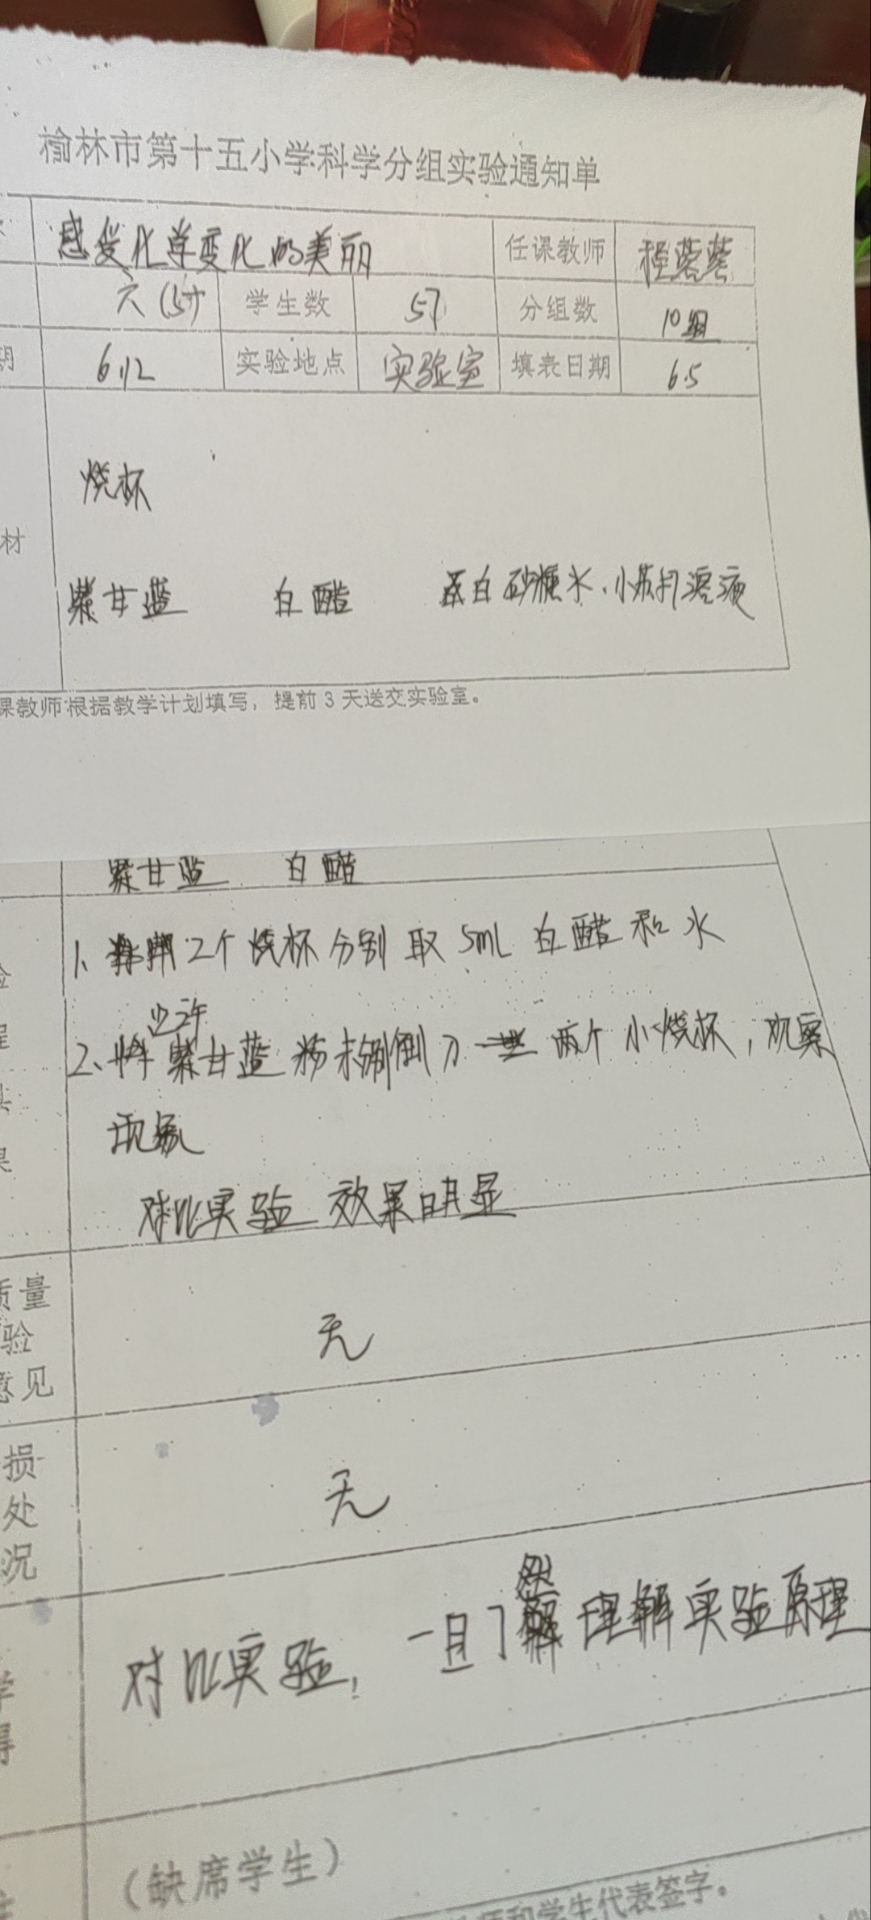 榆林市第十五小学科学分组实验通知单
感受化学变化的美丽 任课教师 程蓉蓉
六(5) 学生数 57 分组数 10组
期 6.12 实验地点 实验室 填表日期 6.5
烧杯
材
紫甘蓝 白醋 白砂糖水、小苏打溶液
课教师根据教学计划填写，提前3天送交实验室。
紫甘蓝 白醋
1、2个烧杯分别取5mL白醋和水
2、将少许紫甘蓝粉末倒入两个小烧杯，观察
现象
对比实验 效果明显
质量
验
意见
无
损
处
况
无
对比实验，一目了然理解实验原理
学
得
(缺席学生)
师和学生代表签字。